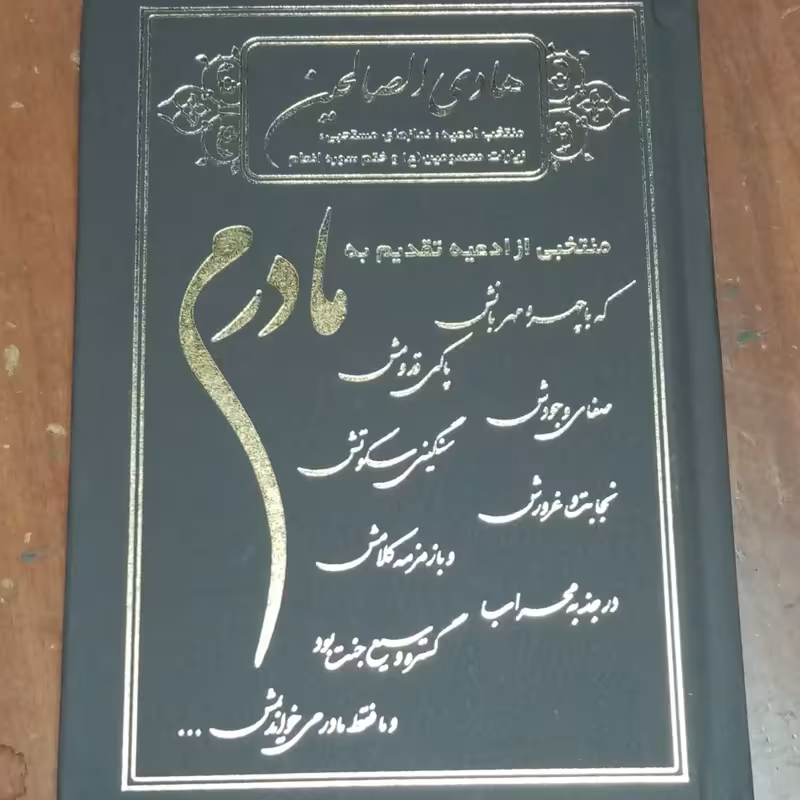 هادی الصالحین
منتخب ادعیه، نمازهای مستحبی،
زیارات معصومین(ع) و ختم سوره انعام
منتخبی از ادعیه تقدیم به
مادرم
که با چهره مهربانش
پاکی قدومش
صفای وجودش
سنگینی سکوتش
نجابت و غرورش
و با زمزمه کلامش
در جذبه محراب
گستره وسیع جنت بود
و ما فقط مادر می خواندیمش ...